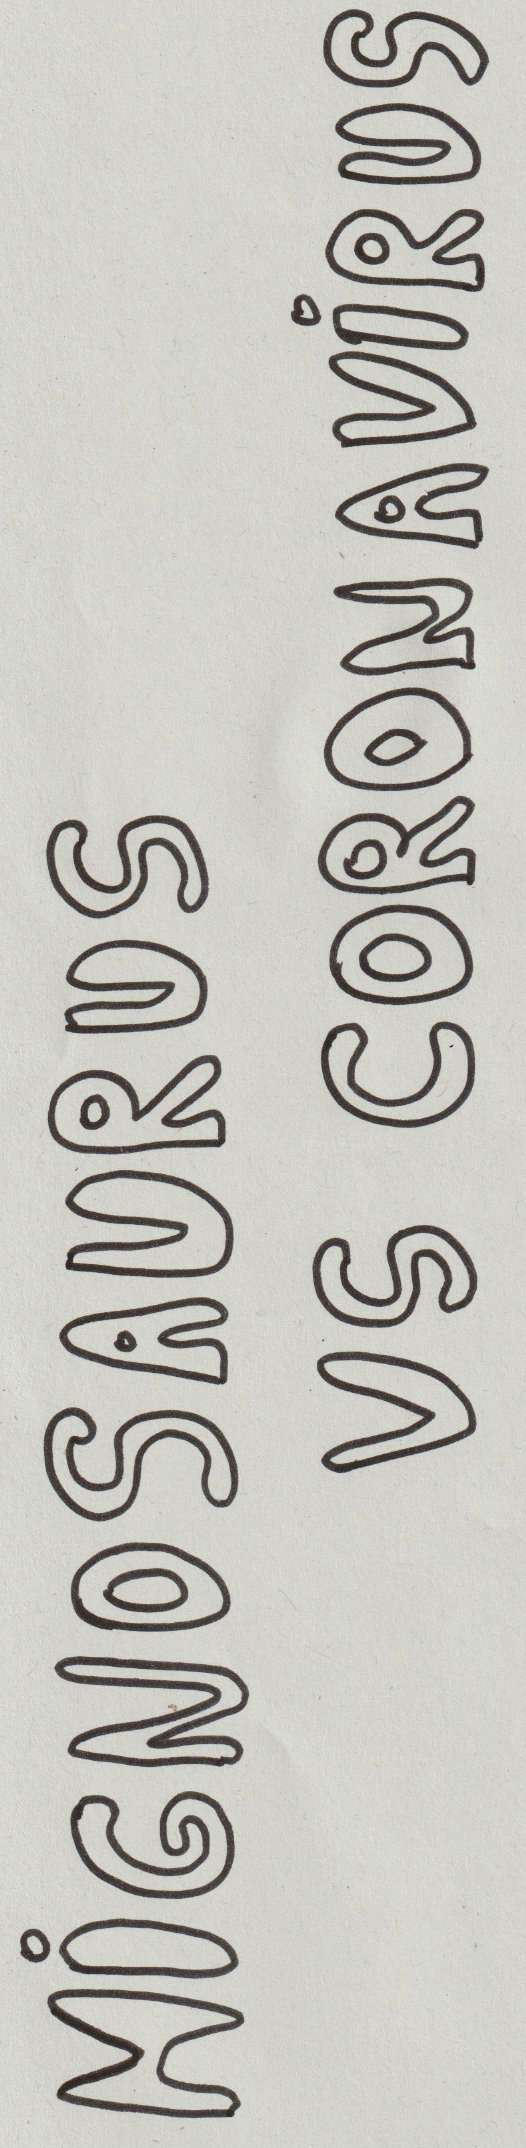 MiGNOSAURUS
VS CORONAViRUS